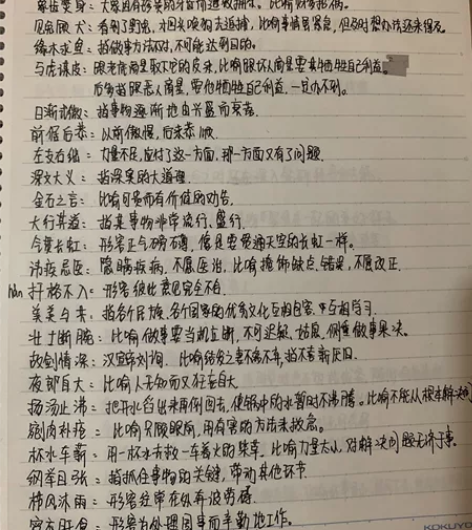 见兔顾犬：看到了野兔，才回头唤狗去追捕，比喻事情虽紧急，但及时想办法还来得及。
缘木求鱼：指做事方法不对，不可能达到目的。
与虎谋皮：跟老虎商量取它的皮来，比喻跟坏人商量要其牺牲自己利益。
后多指跟恶人商量，要他牺牲自己利益，一定办不到。
日渐式微：指事物逐渐地由兴盛而衰落
前倨后恭：以前傲慢，后来恭顺
左支右绌：力量不足，应付了这一方面，那一方面又有了问题
深文大义：指深奥的大道理
金石之言：比喻可贵而有价值的劝告
大行其道：指某事物非常流行、盛行
气贯长虹：形容正气磅礴，像是要贯通天空的长虹一样。
讳疾忌医：隐瞒疾病，不愿医治，比喻掩饰缺点、错误，不愿改正
扞格不入：形容彼此意见完全不合
美美与共：指各个民族、各个国家的优秀文化互相包容、互相学习
壮士断腕：比喻做事要当机立断，不可迟疑、姑息，侧重做事果决。
故剑情深：汉宣帝刘询，比喻结发之妻不离不弃，指不喜新厌旧
夜郎自大：比喻人无知而又狂妄自大
扬汤止沸：把开水舀出来再倒回去，使锅中的水暂时不沸腾。比喻不能从根本解决问
剜肉补疮：比喻只顾眼前，用有害的方法来救急。
杯水车薪：用一杯水去救一车着火的柴草，比喻力量太小，对解决问题无济于事
纲举目张：指抓住事物的关键，带动其他环节
栉风沐雨：形容经常在外奔波劳碌
宵衣旰食：形容为处理国事而辛勤地工作。
KOKUYO